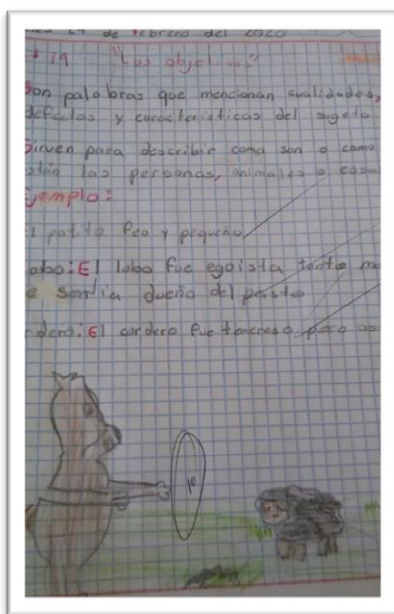 de Febrero del 2020
# 19 "Los
Son palabras que mencionan cualidades,
defectos y características del sujeto
Sirven para describir como son o como
están las personas, animales o cosas
Ejemplo:
El patito feo y pequeño
lobo: El lobo fue egoista tonto
e sentia dueño del
cordero: El cordero fue pero
10